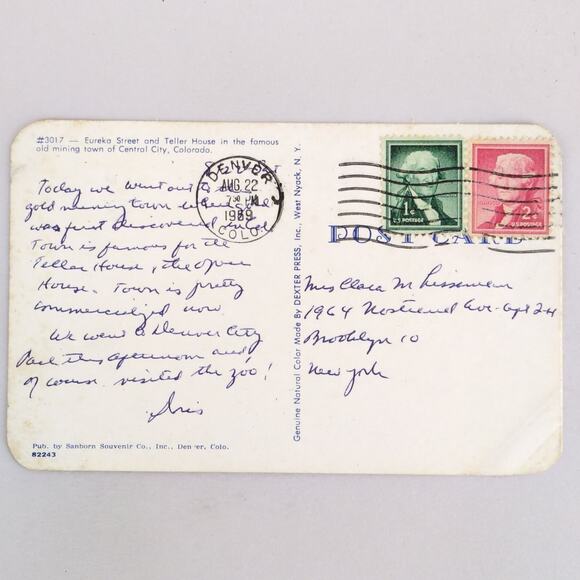 #3017 — Eureka Street and Teller House in the famous
old mining town of Central City, Colorado.
Today we went out to a
gold mining town where
was first discovered in Col.
Town is famous for the
Teller House, the opera
House. Town is pretty
commercialized now.
We went to Denver City
Park this afternoon and
of course visited the zoo!
Iris
Pub. by Sanborn Souvenir Co., Inc., Denver, Colo.
82243
Genuine Natural Color Made By DEXTER PRESS, Inc., West Nyack, N. Y.
DENVER
AUG 22
7 30 PM
1959
COLO.
1¢
U.S. POSTAGE
2¢
U.S. POSTAGE
POST CARD
Miss Clara M
1964 Nostrand Ave - Apt 2H
Brooklyn 10
New York